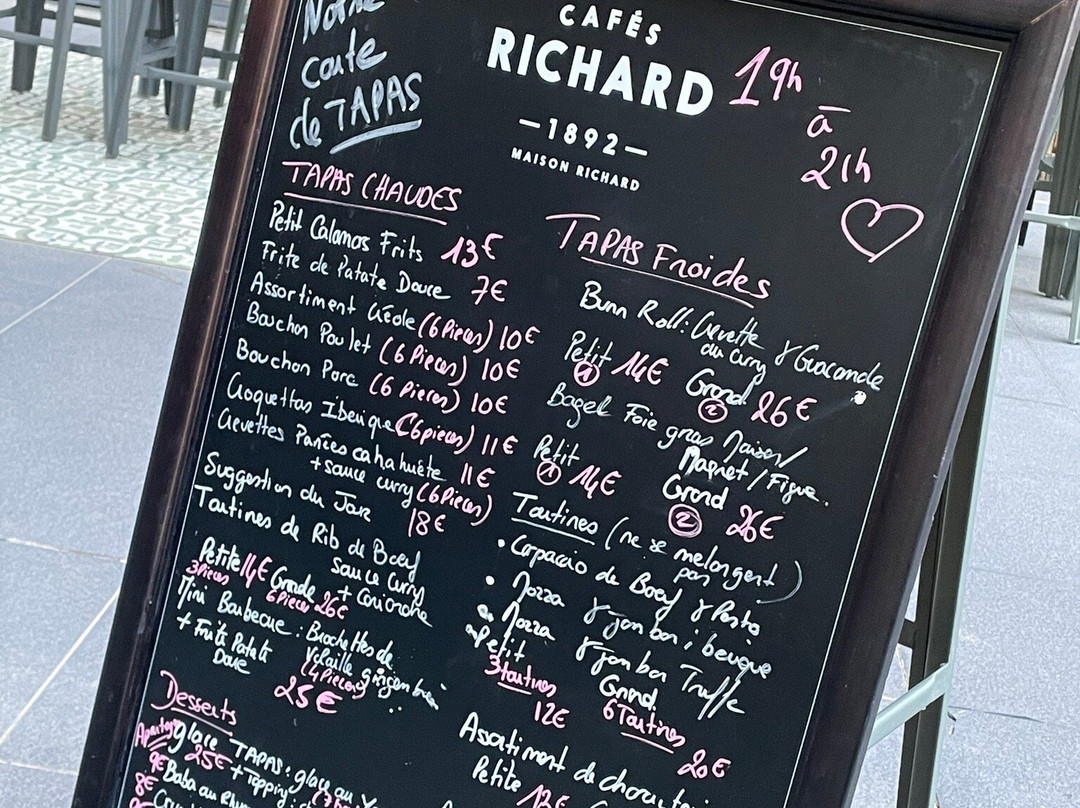 Notre
carte
de TAPAS
CAFÉS
RICHARD
—1892—
MAISON RICHARD
19h
à
21h
TAPAS CHAUDES
Petit Calamas Frits 13€
Frite de Patate Douce 7€
Assortiment Créole (6 Pieces) 10€
Bouchon Poulet (6 Pieces) 10€
Bouchon Porc (6 Pieces) 10€
Croquettas Iberique (6 pieces) 11€
Crevettes Panées cahahuète 11€
+ sauce curry (6 Pieces)
Suggestion du Jour 18€
Tartines de Rib de Boeuf
sauce curry
+ Coriandre
Petite 14€ Grande 26€
3 Pieces 6 Pieces
Mini Barbecue : Brochettes de
Volaille gingembre
+ Frite Patate (4 Pieces)
Douce
25€
Desserts
glace TAPAS : glace au
25€ + Topping
9€ Baba au Rhum
8€
TAPAS Froides
Bunn Roll : Crevette & Guacamole
au curry
Petit 14€ Grand 26€
1 2
Bagel Foie gras Maison /
Magret / Figue.
Petit 14€ Grand 26€
1 2
Tartines (ne se melangent
pas)
• Carpaccio de Boeuf & Pesto
• Mozza & jambon iberique
ou Mozza & jambon Truffe
Petit Grand
3 tartines 6 Tartines
12€ 20€
Assortiment de
Petite 12€